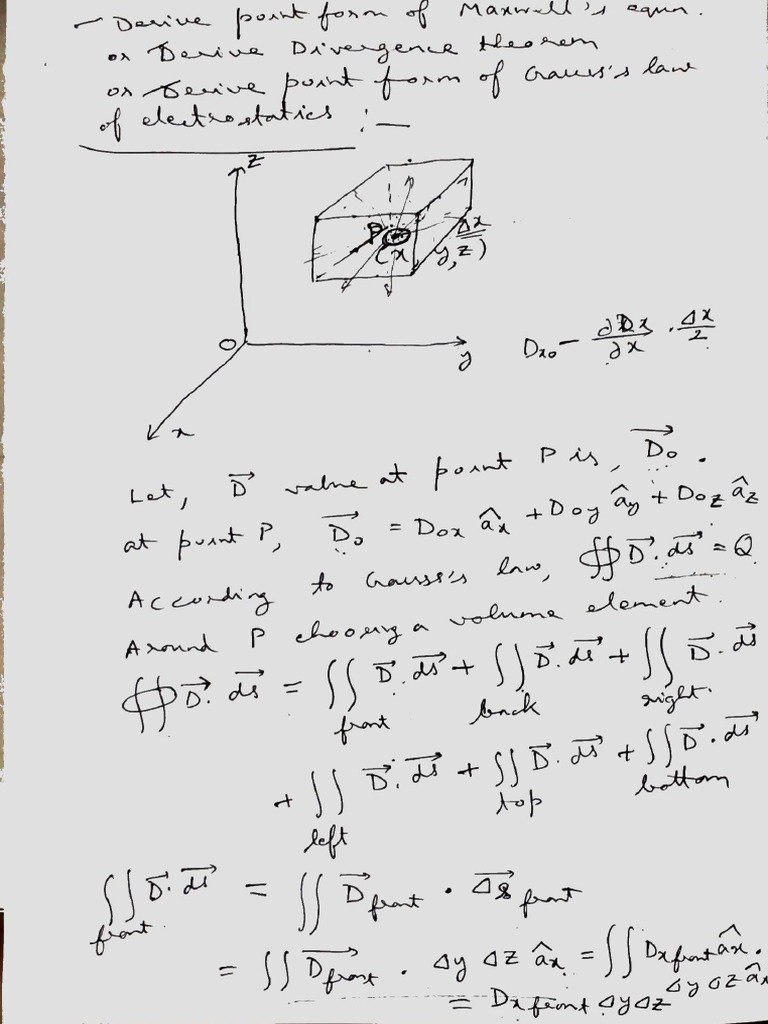 - Derive point form of Maxwell's equn.
or Derive Divergence theorem
or Derive point form of Gauss's law
of electrostatics :-
z
P
(x y, z)
Δx
O
y
x
Dxo - ∂Dx/∂x . Δx/2
Let, D⃗ value at point P is, D⃗o.
at point P, D⃗o = Dox âx + Doy ây + Doz âz
According to Gauss's law, ∯ D⃗. ds⃗ = Q
Around P choosing a volume element.
∯ D⃗. ds⃗ = ∬ D⃗. ds⃗ + ∬ D⃗. ds⃗ + ∬ D⃗. ds⃗
front back right.
+ ∬ D⃗. ds⃗ + ∬ D⃗. ds⃗ + ∬ D⃗. ds⃗
left top bottom
∬ D⃗. ds⃗ = ∬ D⃗front . Δs⃗ front
front.
= ∬ D⃗front . Δy Δz âx = ∬ Dxfront âx .
Δy Δz âx
= Dxfront Δy Δz